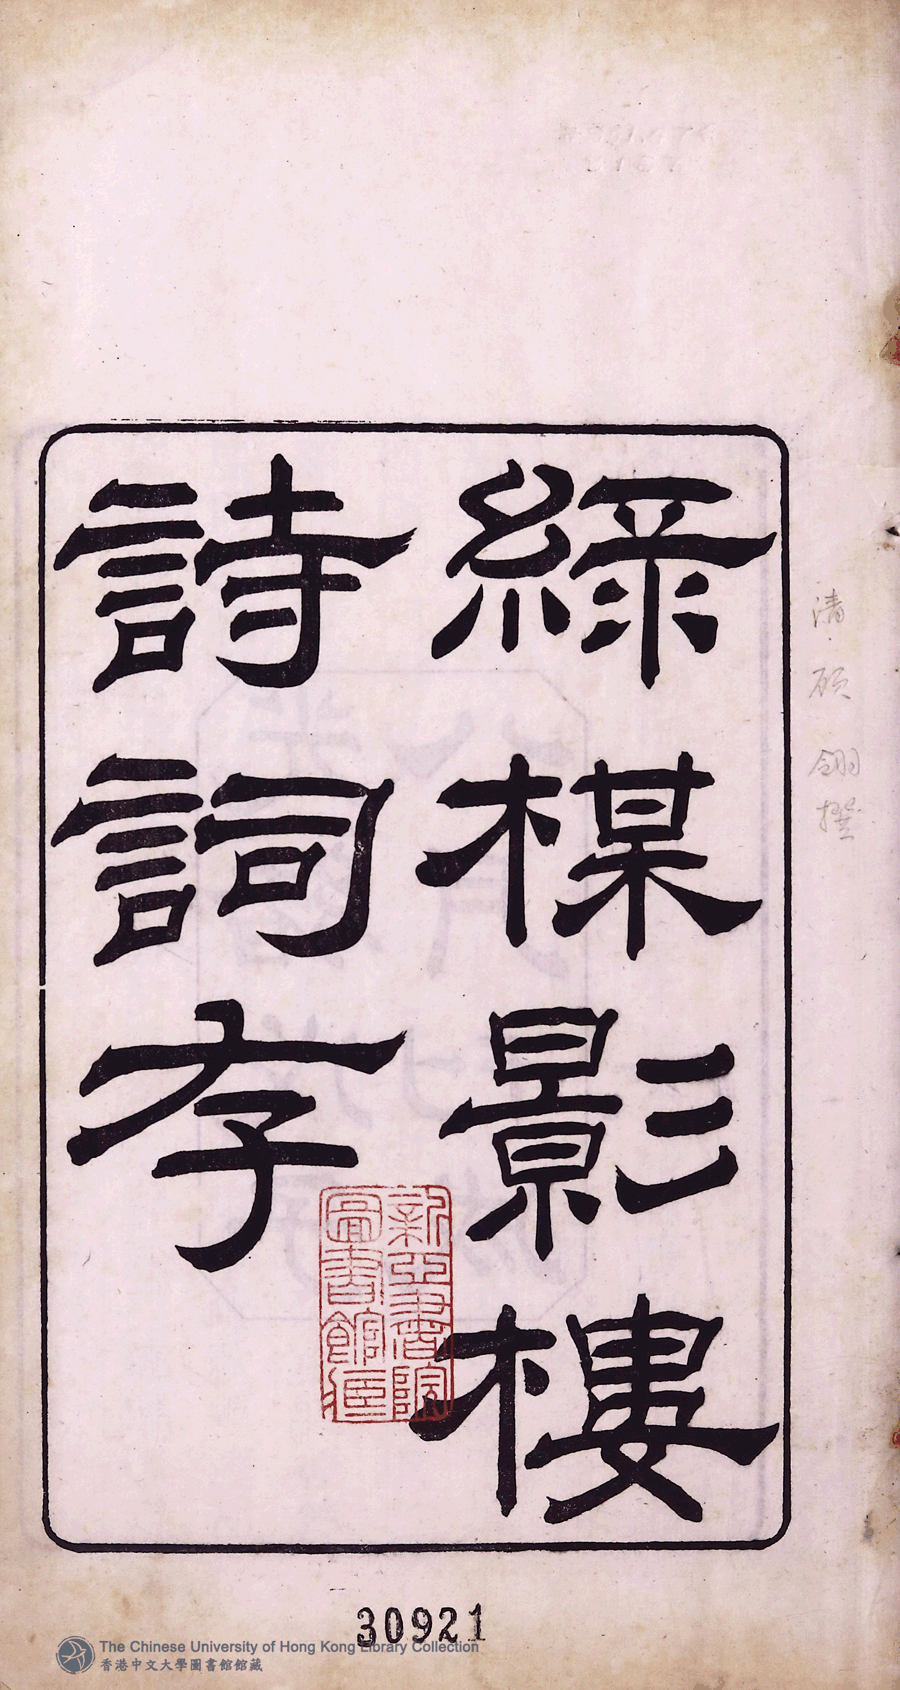 綠楳影樓
詩詞存
清 顾翎撰
新亞書院
圖書館藏
30921
The Chinese University of Hong Kong Library Collection
香港中文大學圖書館館藏